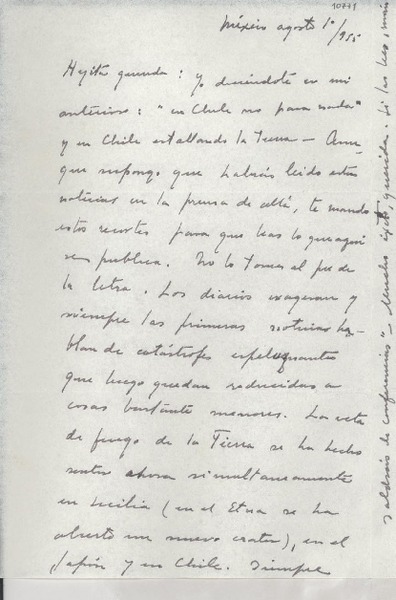 10771
México agosto 1º/955
Hijita querida: Yo diciéndote en mi
anterior: "en Chile no pasa nada"
y en Chile estallando la tierra — Aun-
que supongo que habrás leído estas
noticias en la prensa de allá, te mando
estos recortes para que leas lo que aquí
se publica. No lo tomes al pie de
la letra. Los diarios exageran y
siempre las primeras noticias ha-
blan de catástrofes espeluznantes
que luego quedan reducidas a
cosas bastante menores. La veta
de fuego de la Tierra se ha hecho
sentir ahora simultáneamente
en Sicilia (en el Etna se ha
abierto un nuevo crater), en el
Japón y en Chile. Siempre
de conferencias" — Mucho éxito, querida. Si las leo, más